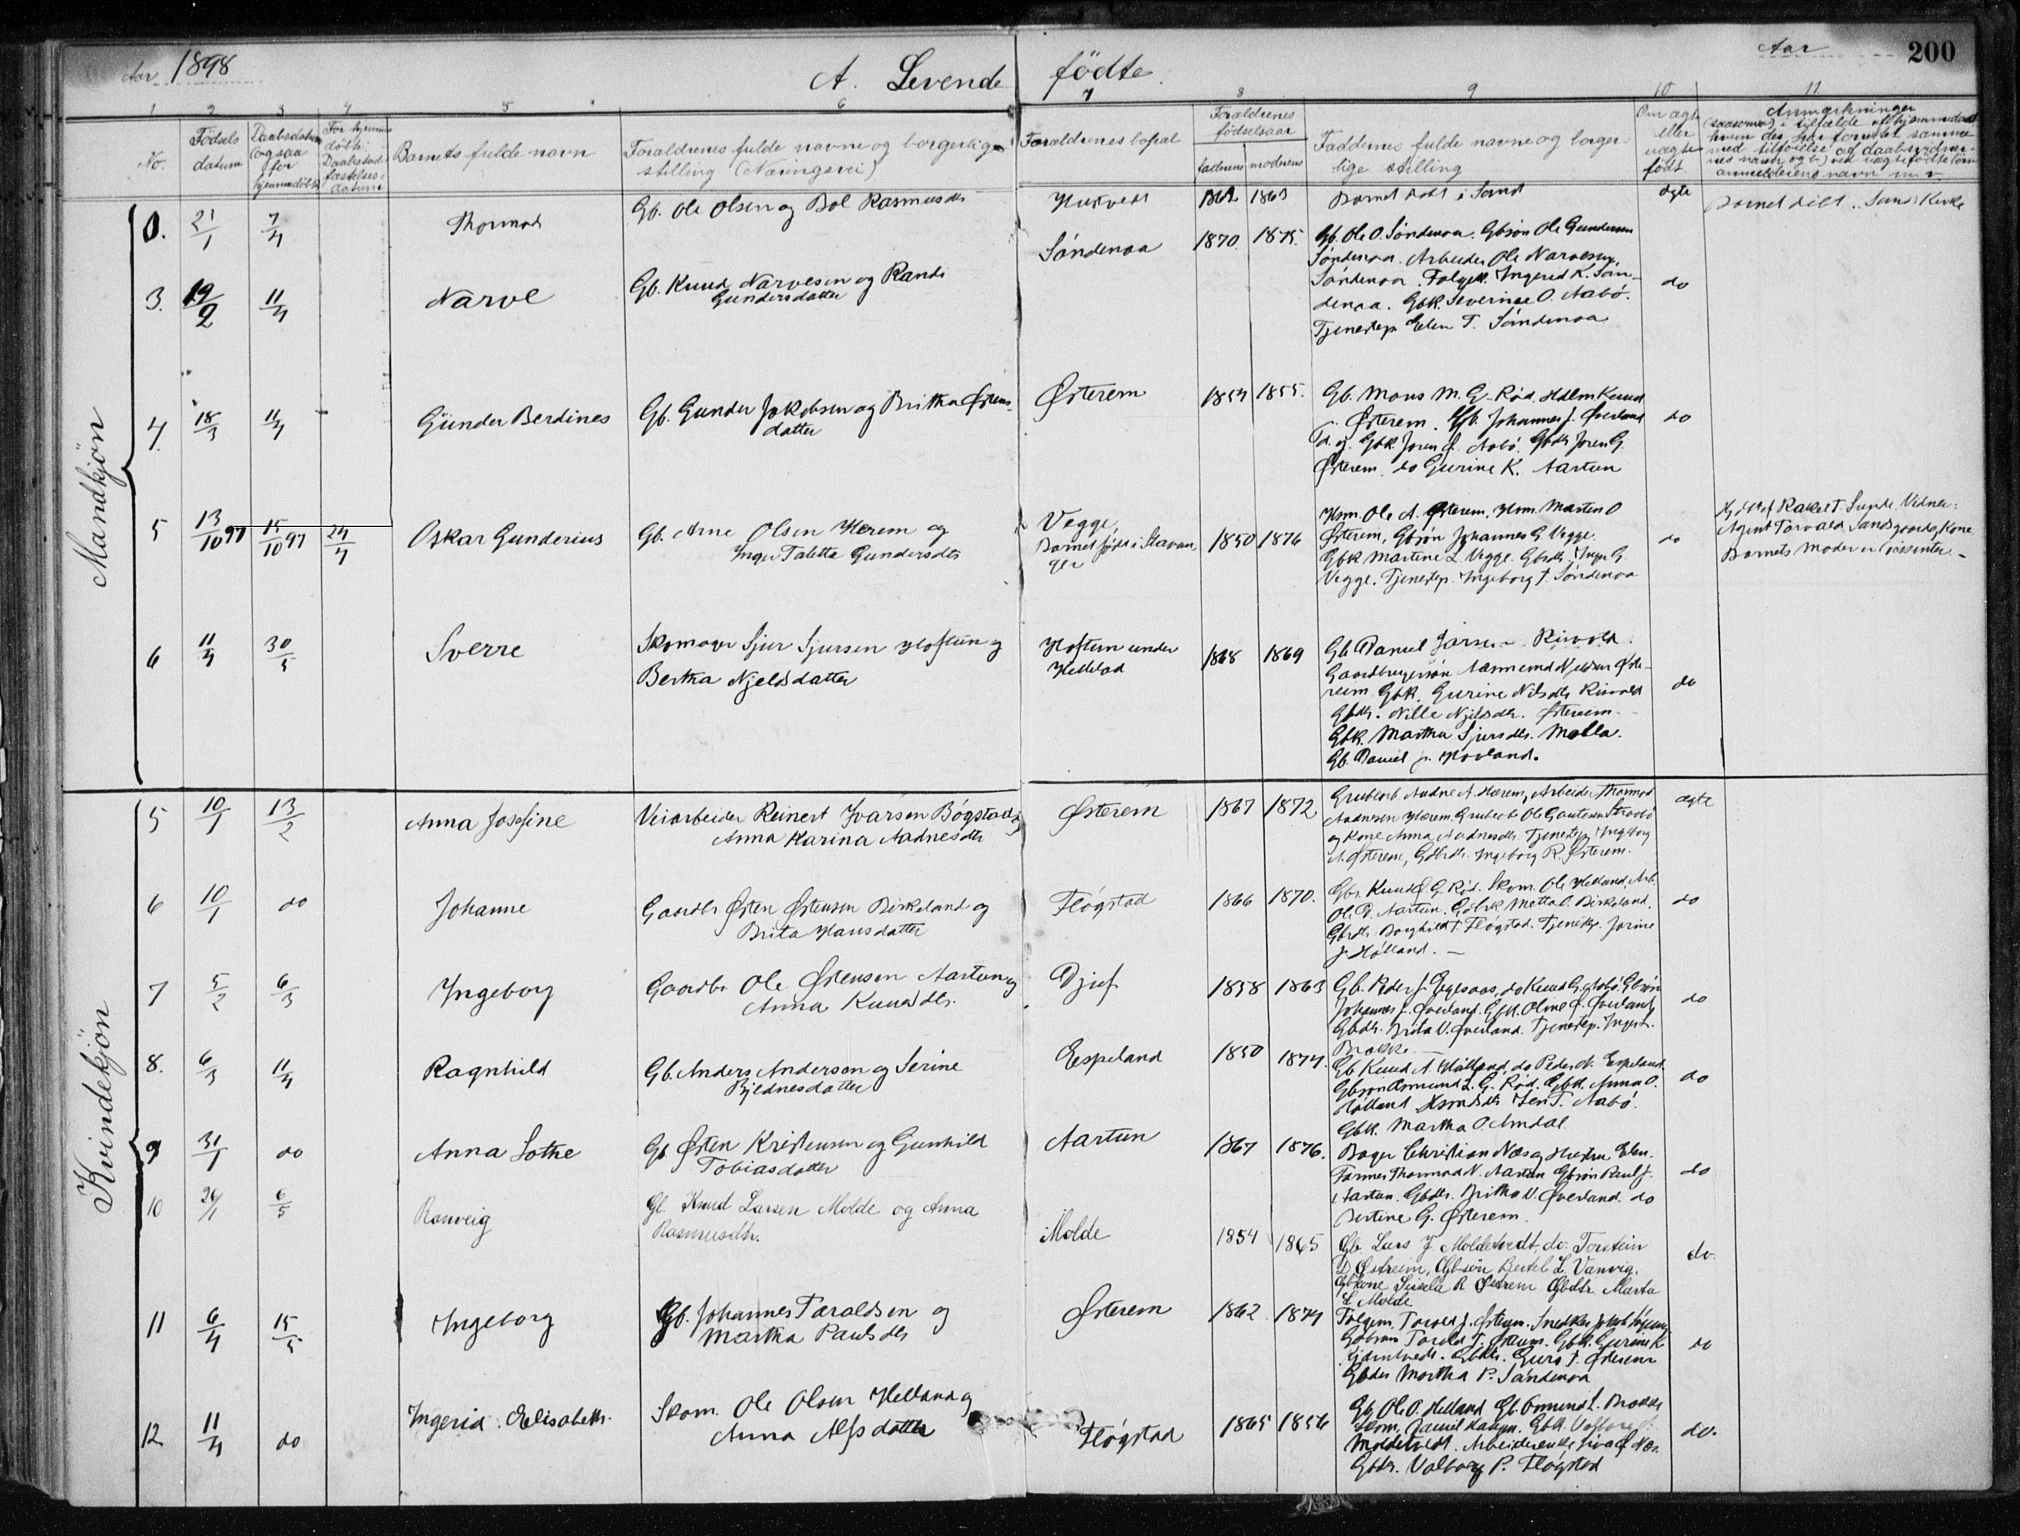 Aar 1898
A. Levende fødte.
Aar
200
1 2 3 4 5 6 7 8 9 10 11
No.
Fødsels datum
Daabsdatum (ogsaa for hjemmedøbte)
For hjemmedøbte: Daabstad-fæstelses-datum
Barnets fulde navn
Forældrenes fulde navne og borgerlige stilling (Næringsvei)
Forældrenes bopæl
Forældrenes fødselsaar
faderens moderens
Faddernes fulde navne og borgerlige stilling
Om ægte eller uægte født
Anmærkninger
Mandkjøn
21/1 7/4 Thormod
Gb. Ole Olsen og Bol Rasmusdtr
1863
Barnet døbt i Sand
ægte
Barnet døbt i Sands Kirke
3. 19/2 11/4 Narve
Gb. Knud Narvesen og Randi
Gundersdatter
Søndenaa 1870. 1875.
Gb. Ole O. Søndenaa. Gbsøn Ole Gundersen
Søndenaa. Arbeider Ole Narvesen,
Søndenaa. Folgek. Ingered K. Søn-
denaa. Gbk. Severine O. Aabø.
Tjenestep. Elen T. Søndenaa
do
4. 18/3 11/4 Gunder Berdines
Gb. Gunder Jakobsen og Britha Østens-
datter
Østerem 1854 1855.
Gb. Mons M. G. Rød. Knud
Østerem. Gb. Johannes J. Øverland
Gbk. Joren J. Aabø. Gbdtr Joren G.
Østerem. do Gurine K. Aartun
do
5 13/10 97 15/10 97 24/4 Oskar Gunderius
Gb. Arne Olsen Herem og
Inger Talette Gundersdtr
Vegge,
Barnet født i Stavan-
ger
1850 1876
Hsm. Ole A. Østerem. Hsm. Morten O
Østerem, Gbsøn Johannes G Vegge.
Gbk Martine L Vegge. Gbrdtr. Inger G.
Vegge. Tjenestep. Ingeborg T. Søndenaa
do
Rakel T. Sunde Vidner:
Agent Torvald Sandsgaard og Kone
Barnets Moder er
6 11/4 30/5 Sverre
Skomager Sjur Sjursen Hoftun og
Bertha Njeldsdatter
Hoftun under
1868 1869
Gb. Daniel Risvold.
Gaardbrugersøn Aanmund Njeldsen Øste-
reim. Gbk. Gurine Nilsdtr Risvold
Gbdtr. Nille Njeldsdtr. Østereem.
Gbk. Martha Sjursdtr. Molla.
Gb. Daniel J. Hovland.
do
Kvindekjøn
5 10/1 13/2 Anna Josefine
Veiarbeider Reinert Ivarsen Bøgstad og
Anna Karina Aadnesdtr
Østerem 1867 1872
Grubearb. Aadne A. Herem, Arbeider Thormod
Aadnesen Herem. Grubearb. Ole Gautesen
og Kone Anna Aadnesdtr. Tjenestep. Ingeborg
A. Østerem, Gbrdtr. Ingeborg R. Østerem.
ægte
6 10/1 do Johanne
Gaardbr Østen Østensen Birkeland og
Brita Hansdatter
Fløgstad 1866 1870.
Gbr. Knud G. Rød. Skom. Ole Helland, Arb.
Ole D. Aartun. Gbrk Metta O. Birkeland.
Gbrdtr. Borghild T. Fløgstad. Tjenestep. Jorine
J. Hølland.
do
7 5/2 6/3 Ingeborg
Gaardbr Ole Østensen Aartun og
Anna Knudsdtr.
Djuf 1858 1863
Gb. Peder J. do Knud G. Aabø. Gbsøn
Johannes J. Øverland. Gbk. Oline O. Øverland,
Gbdtr. Brita V. Øverland. Tjenestep.
do
8. 6/3 11/4 Ragnhild
Gb. Anders Andersen og Serine
Bjednesdatter
Espeland 1850 1874.
Gb. Knud A. Hølland, do Peder N. Espeland
Gbsøn Osmund L. G. Rød. Gbk. Anna O.
Hølland T. Aabø.
Gbk. Martha O Amdal.
do
9 31/1 do Anna Lothe
Gb Østen Kristensen og Gunhild
Tobiasdatter
Aartun 1867 1876.
Bager Christian Næs og Hustru Elen.
Farmer Thormod N. Aartun Gbsøn Paul J.
Aartun. Gbdtr. Britha V. Øverland. do
Bertine G. Østerem.
do
10 24/1 6/5 Ranveig
Gb. Knud Larsen Molde og Anna
Rasmusdtr.
Molde 1854 1865
Gb Lars J Moldetvedt, do. Torstein
D. Østreim, Gbsøn Bertel L. Vanvig.
Gbkone Sissela R Østrem Gbdtr Marta
L Molde
do.
11 6/4 15/5 Ingeborg
Gb. Johannes Taraldsen og
Martha Paulsdtr
Østerem 1862 1874
Folgem. Tarald J. Østerem. Snedker Jakob
Gbsøn Tarald T. Østerem. Gbk. Gurine K
Gbdtr. Guro T. Østerem
Gbdtr Martha P. Søndenaa
do
12 11/4 do Ingerid Elisabeth.
Skom. Ole Olsen Helland og
Anna Alfsdatter
Fløgstad 1865 1856
Gb Ole O. Helland Gb. Osmund L. Brakke
Gbk.
Moldetvedt. Arbeiderenke
Gbdtr. Valborg P. Fløgstad
do.